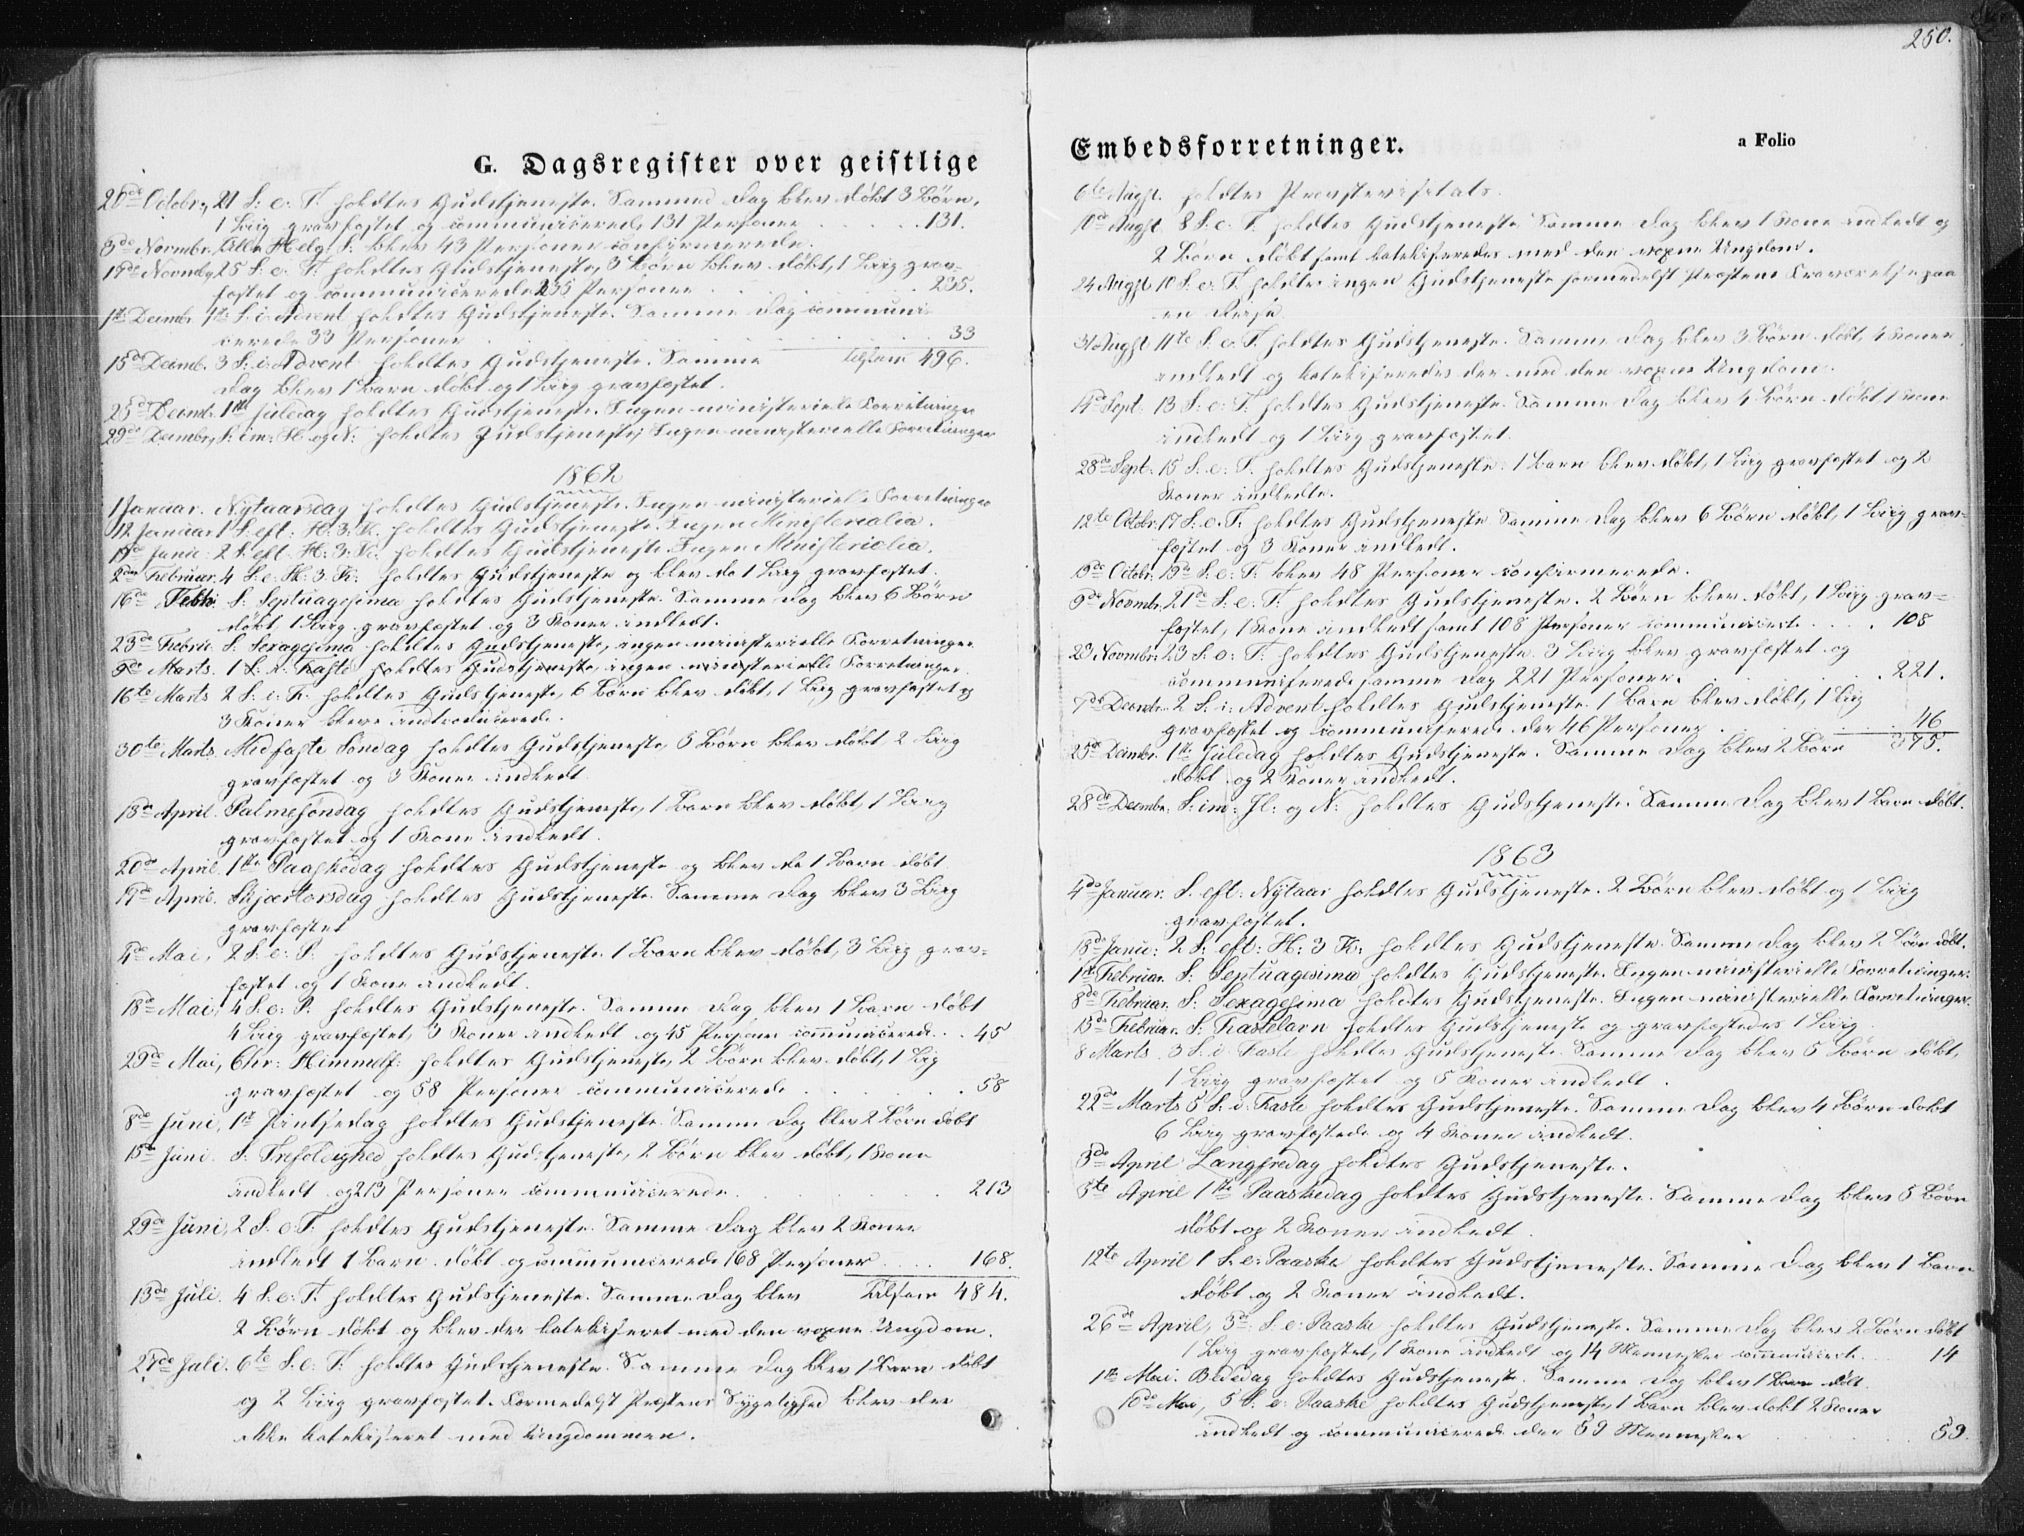 250.
G. Dagsregister over geistlige
Embedsforretninger.
a Folio
20de Octobr, 21 S. e. T. holdtes Gudstjeneste. Sammed Dag blev døbt 3 Børn,
1 Liig gravfæstet og communicerede 131 Personer . . . 131.
3de Novembr. Alle Helg. S. bleve 43 Personer confirmerede.
17de Novmbr, 25 S. e. T. holdtes Gudstjeneste, 3 Børn blev døbt, 1 Liig grav-
fæstet og communicerede 235 Personer . . . 235.
1ste Decmbr. 1ste S. i Advent holdtes Gudstjeneste. Samme Dag communi-
cerede 33 Personer . . . 33
15de Decmb. 3 S. i Advent holdtes Gudstjeneste. Samme Tilsam 496.
Dag blev 1 Barn døbt og 1 Liig gravfæstet.
25de Decmb. 1ste Juledag holdtes Gudstjeneste. Ingen ministerielle Forretninger
29de Decmbr, S. im: H. og N: holdtes Gudstjeneste, Ingen ministerielle Forretninger
1862
1 Januar. Nytaarsdag holdtes Gudstjeneste. Ingen ministerielle Forretninger
12 Januar 1 S. eft: H. 3. K. holdtes Gudstjeneste. Ingen Ministerialia.
19de Janu: 2 S. eft. H: 3. K. holdtes Gudstjeneste. Ingen Ministerialia.
2den Februar. 4 S: e. H: 3. K: holdtes Gudstjeneste og blev da 1 Liig gravfæstet.
16de Febr. S. Septuagesima holdtes Gudstjeneste. Samme Dag blev 6 Børn
døbt, 1 Liig gravfæstet og 3 Koner indledt.
23de Februar. S. Sexagesima holdtes Gudstjeneste, ingen ministerielle Forretninger
9de Marts. 1 S. i. Faste holdtes Gudstjeneste, ingen ministerielle Forretninger.
16te Marts 2 S. i. F. holdtes Gudstjeneste, 6 Børn blev døbt, 1 Liig gravfæstet og
3 Koner bleve introducerede.
30te Marts. Midfaste Søndag holdtes Gudstjeneste, 5 Børn blev døbt, 2 Liig
gravfæstet og 3 Koner indledt.
13de April. Palmesøndag holdtes Gudstjeneste, 1 Barn blev døbt, 1 Liig
gravfæstet og 1 Kone indledt.
20de April. 1ste Paaskedag holdtes Gudstjeneste og blev da 1 Barn døbt
17de April. Skjærtorsdag holdtes Gudstjeneste. Samme Dag blev 3 Liig
gravfæstet
4de Mai, 2 S. e: P. holdtes Gudstjeneste. 1 Barn blev døbt, 3 Liig grav-
fæstet og 1 Kone indledt.
18de Mai, 4 S. e: P. holdtes Gudstjeneste. Samme Dag blev 1 Barn døbt
4 Liig gravfæstet, 3 Koner indledt og 45 Personer communicerede . . 45
29de Mai, Chr: Himmelf: holdtes Gudstjeneste, 2 Børn blev døbt, 1 Liig
gravfæstet og 58 Personer communicerede . . . 58
8de Juni, 1ste Pintsedag holdtes Gudstjeneste. Samme Dag blev 2 Børn døbt
15de Juni. S. Trefoldighed holdtes Gudstjeneste, 2 Børn blev døbt, 1 Kone
indledt og 213 Personer communicerede . . . 213
29de Juni, 2 S. e. T. holdtes Gudstjeneste. Samme Dag blev 2 Koner
indledt 1 Barn døbt og communicerede 168 Personer . . . 168.
13de Juli. 4 S. e. T. holdtes Gudstjeneste. Samme Dag blev Tilsam 484.
2 Børn døbt og blev der katekiseret med den voxne Ungdom.
27de Juli. 6te S. e: T. holdtes Gudstjeneste. Samme Dag blev 1 Barn døbt
og 2 Liig gravfæstet. Formedelst Præstens Sygelighed blev der
ikke katekiseret med Ungdommen.
6te Augst. holdtes Provstevisitats.
10de Augst. 8 S. e. T. holdtes Gudstjeneste. Samme Dag blev 1 Kone indledt og
2 Børn døbt samt katekiseredes med den voxne Ungdom.
24 Augst 10 S. e. T. holdtes ingen Gudstjeneste formedelst Præstens Fraværelse paa
en Reise.
31 Augst 11te S. e. T. holdtes Gudstjeneste. Samme Dag blev 3 Børn døbt, 4 Koner
indledt og katekiseredes der med den voxne Ungdom.
14de Sept. 13 S. e: T. holdtes Gudstjeneste. Samme Dag blev 4 Børn døbt 1 Kone
indledt og 1 Liig gravfæstet.
28de Sept. 15 S. e: T. holdtes Gudstjeneste. 1 Barn blev døbt, 1 Liig gravfæstet og 2
Koner indledte.
12te Octobr. 17 S. e. T. holdtes Gudstjeneste Samme Dag blev 6 Børn døbt, 1 Liig grav-
fæstet og 3 Koner indledt.
19de Octobr. 19de S. e: T. blev 48 Personer confirmerede.
9de Novmbr. 21de S. e: T. holdtes Gudstjeneste. 2 Børn blev døbt, 1 Liig grav-
fæstet, 1 Kone indledt samt 108 Personer communicerte . . . 108
23. Novmbr. 23 S. e: T. holdtes Gudstjeneste. 3 Liig blev gravfæstet og
communiserede samme Dag 221 Personer. . . . 221.
7de Decmbr. 2 S. i. Advent holdtes Gudstjeneste. 1 Barn blev døbt, 1 Liig
gravfæstet og communiserede der 46 Personer . . . 46
25de Decmbr. 1ste Juledag holdtes Gudstjeneste. Samme Dag blev 2 Børn 375.
døbt og 2 Koner indledt.
28de Decmbr. S. im: H: og N: holdtes Gudstjeneste. Samme Dag blev 1 Barn døbt.
1863
4de Januar. S. eft: Nytaar holdtes Gudstjeneste. 2 Børn blev døbt og 1 Liig
gravfæstet.
18de Janu: 2 S. eft: H: 3 K: holdtes Gudstjeneste. Samme Dag blev 2 Børn døbt.
1ste Februar. S. Septuagesima holdtes Gudstjeneste. Ingen ministerielle Forretninger.
8de Februar. S: Sexagesima holdtes Gudstjeneste. Ingen ministerielle Forretninger.
15de Februar. S. Fastelavn holdtes Gudstjeneste og gravfæstedes 1 Liig.
8 Marts. 3 S. i Faste holdtes Gudstjeneste. Samme Dag blev 5 Børn døbt,
1 Liig gravfæstet og 5 Koner indledt.
22de Marts 5 S. i. Faste holdtes Gudstjeneste. Samme Dag blev 4 Børn døbt
6 Liig gravfæstede og 4 Koner indledt.
3de April Langfredag holdtes Gudstjeneste.
5te April 1ste Paaskedag holdtes Gudstjeneste. Samme Dag blev 5 Børn
døbt og 2 Koner indledt.
12te April 1 S. e: Paaske holdtes Gudstjeneste. Samme Dag blev 1 Barn
døbt og 2 Koner indledt.
26de April, 3de S. e: Paaske holdtes Gudstjeneste. Samme Dag blev 2 Børn døbt
1 Liig gravfæstet, 1 Kone indledt og 14 Mennesker communicerte . . . 14
1ste Mai. Bededag holdtes Gudstjeneste. Samme Dag blev 1 Barn døbt.
10de Mai, 5 S. e: Paaske holdtes Gudstjeneste, 1 Barn blev døbt 2 Koner
indledt og communicerede der 59 Mennesker . . . 59.